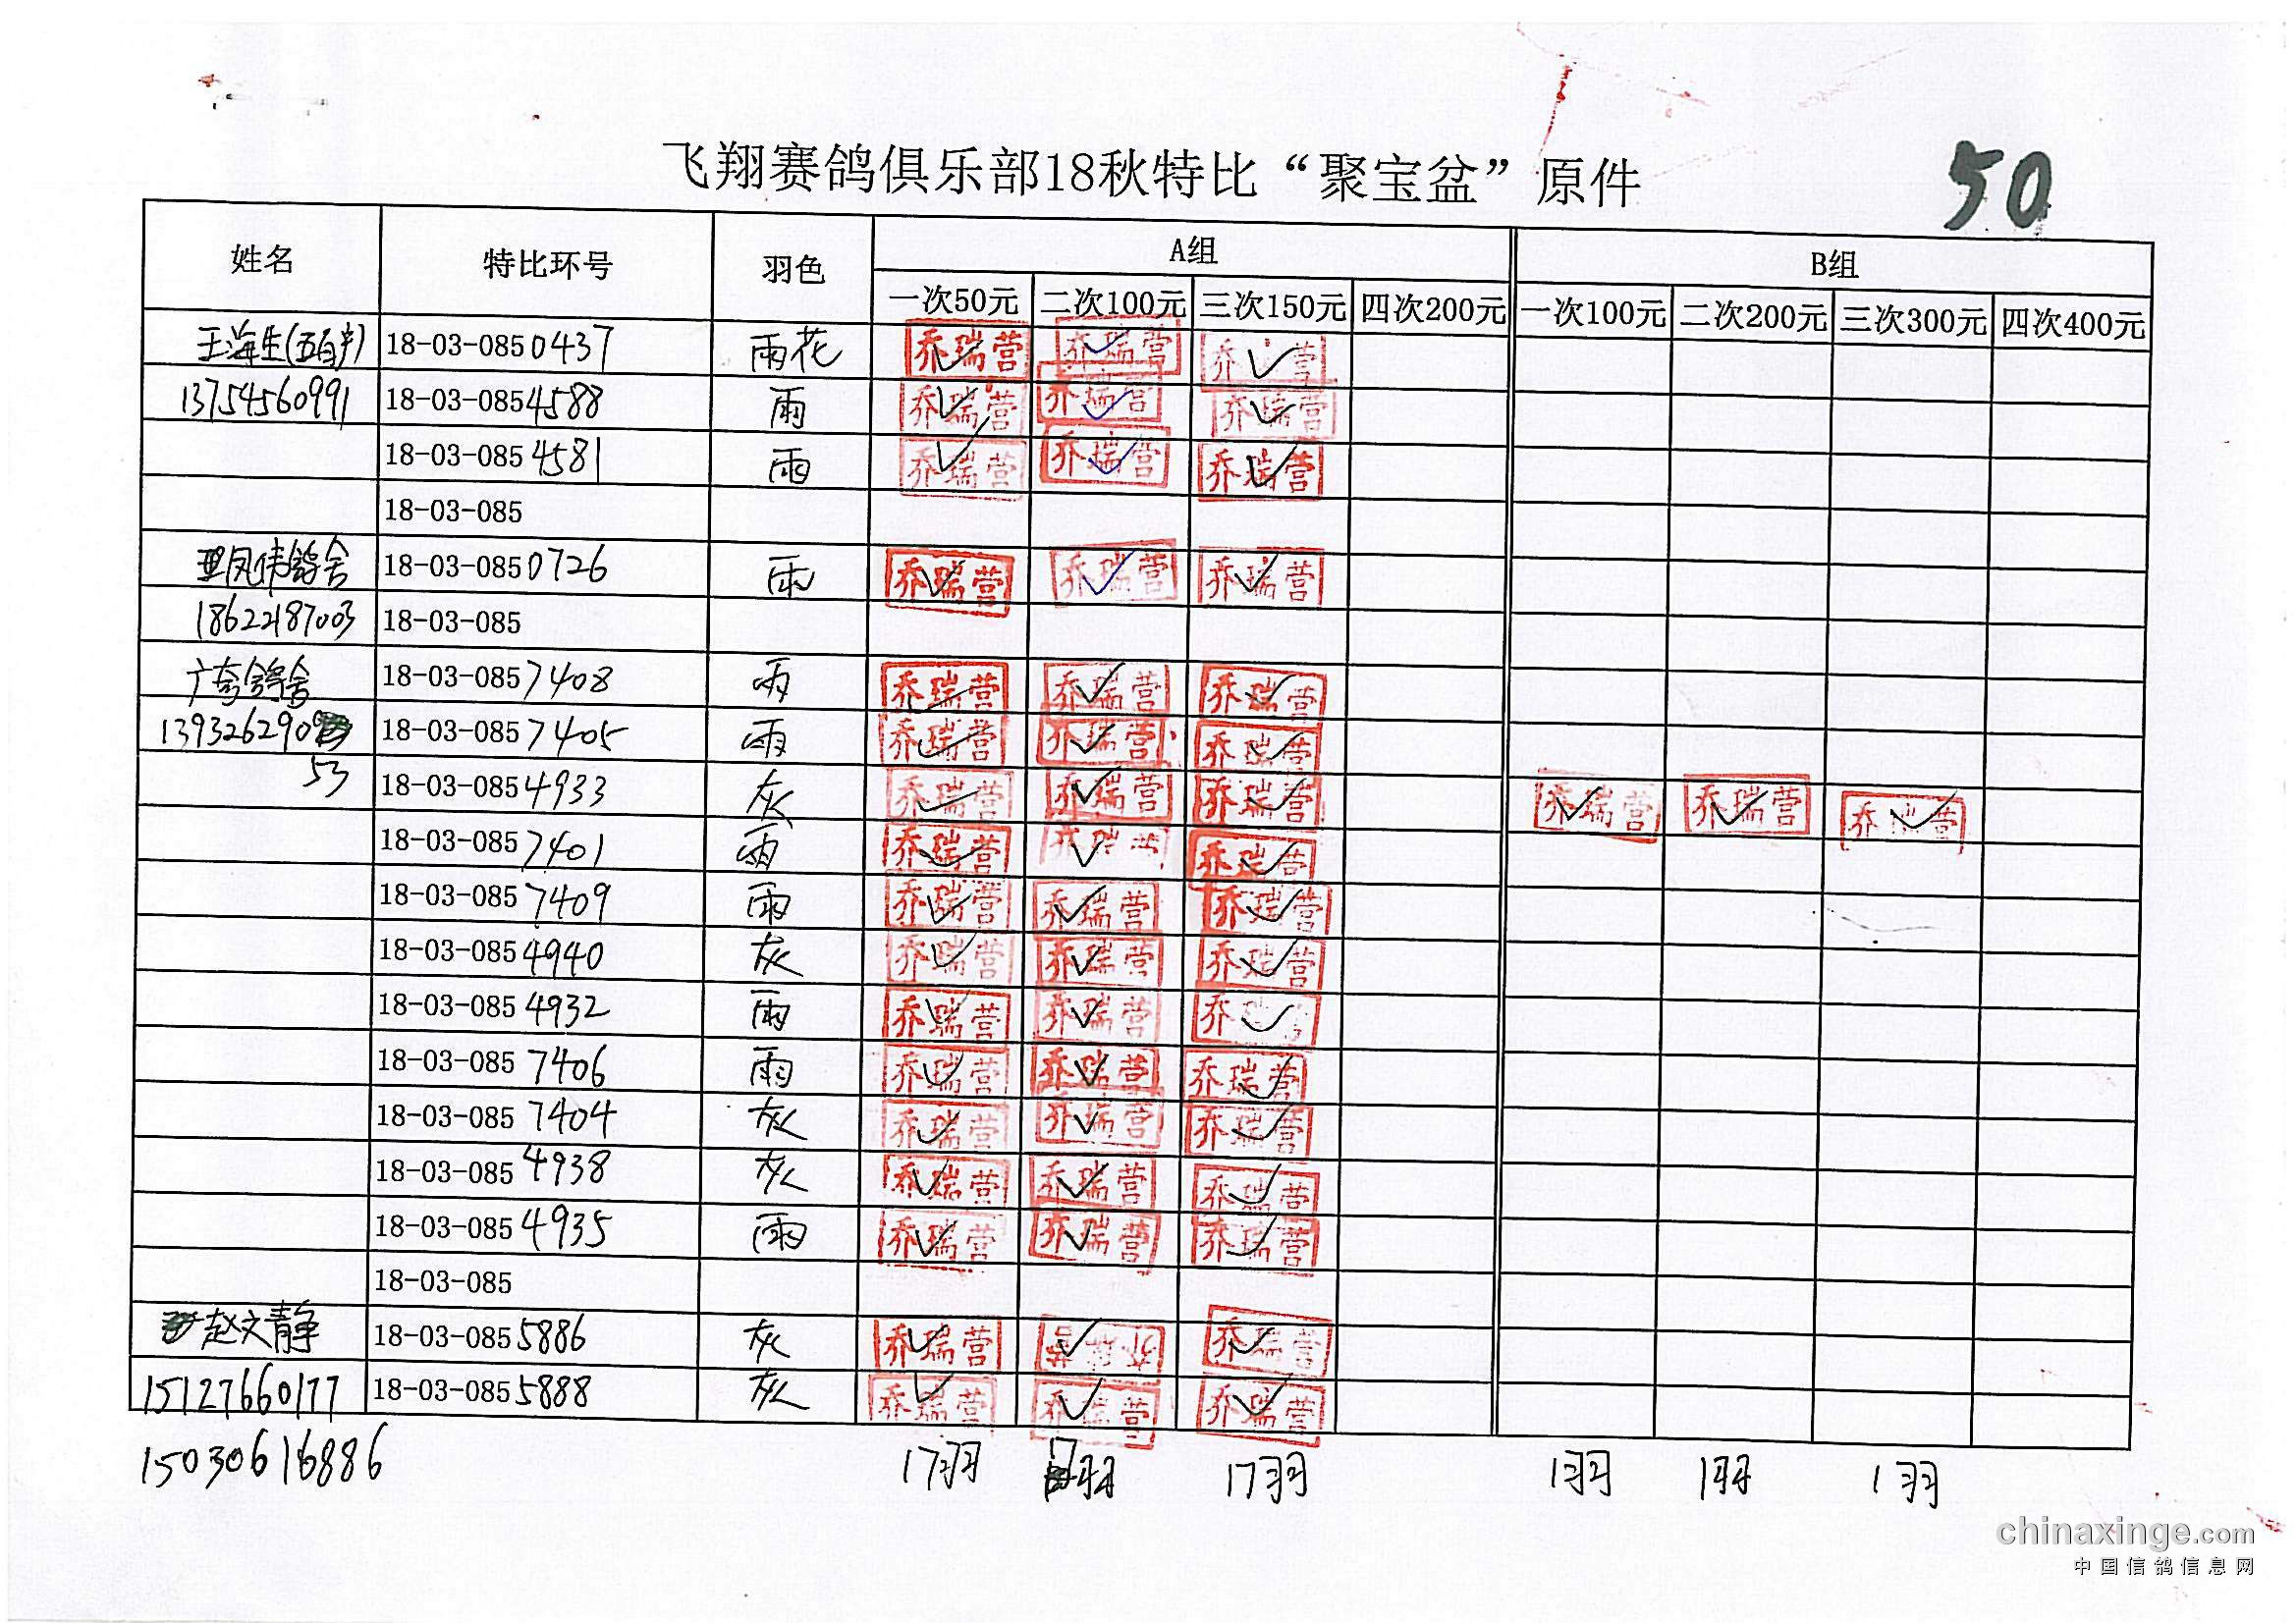 飞翔赛鸽俱乐部18秋特比“聚宝盆”原件
50
姓名 特比环号 羽色 A组 B组
一次50元 二次100元 三次150元 四次200元 一次100元 二次200元 三次300元 四次400元
王海生(五百户) 18-03-0850437 雨花 乔瑞营 乔瑞营 乔 营
13754560991 18-03-0854588 雨 乔瑞营 乔瑞营 乔瑞营
18-03-0854581 雨 乔瑞营 乔瑞营 乔瑞营
18-03-085
凤伟鸽舍 18-03-0850726 雨 乔瑞营 乔瑞营 乔瑞营
18622187003 18-03-085
广奇鸽舍 18-03-0857408 雨 乔瑞营 乔瑞营 乔瑞营
139326290 18-03-0857405 雨 乔瑞营 乔瑞营 乔瑞营
53 18-03-0854933 灰 乔瑞营 乔瑞营 乔瑞营 乔瑞营 乔瑞营 乔瑞营
18-03-0857401 雨 乔瑞营 乔瑞营 乔瑞营
18-03-0857409 雨 乔瑞营 乔瑞营 乔瑞营
18-03-0854940 灰 乔瑞营 乔瑞营 乔瑞营
18-03-0854932 雨 乔瑞营 乔瑞营 乔瑞营
18-03-0857406 雨 乔瑞营 乔瑞营 乔瑞营
18-03-0857404 灰 乔瑞营 乔瑞营 乔瑞营
18-03-0854938 灰 乔瑞营 乔瑞营 乔瑞营
18-03-0854935 雨 乔瑞营 乔瑞营 乔瑞营
18-03-085
赵文静 18-03-0855886 灰 乔瑞营 乔瑞营 乔瑞营
15127660177 18-03-0855888 灰 乔瑞营 乔瑞营 乔瑞营
15030616886 17羽 羽 17羽 1羽 1羽 1羽
chinaxinge.com
中国信鸽信息网